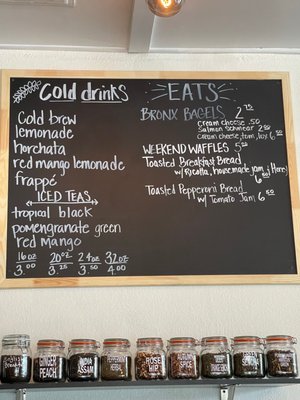 Cold drinks
Cold brew
lemonade
horchata
red mango lemonade
frappé
ICED TEAS
tropical black
pomengranate green
red mango
16oz 20oz 24oz 32oz
3.00 3.25 3.50 4.00
EATS
BRONX BAGELS 2.75
cream cheese .50
Salmon schmear 2.00
cream cheese, tom,
WEEKEND WAFFLES 5.00
Toasted Breakfast Bread
w/ Ricotta, housemade jam, Honey
6.00
Toasted Pepperoni Bread
w/ Tomato Jam 6.50
GINGER PEACH
INDIA ASSAM
PEPPERMINT HERBAL
ROSE HIP
AUTUMN SPICE